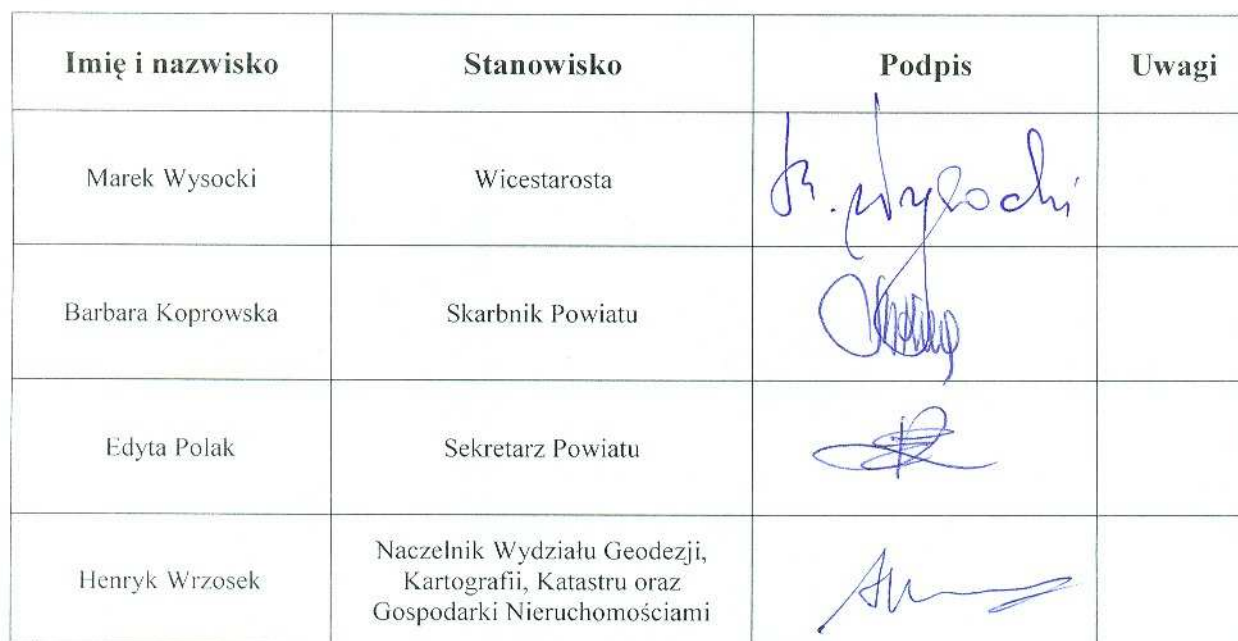 Imię i nazwisko Stanowisko Podpis Uwagi
Marek Wysocki Wicestarosta M. Wysocki
Barbara Koprowska Skarbnik Powiatu
Edyta Polak Sekretarz Powiatu
Henryk Wrzosek Naczelnik Wydziału Geodezji,
Kartografii, Katastru oraz
Gospodarki Nieruchomościami